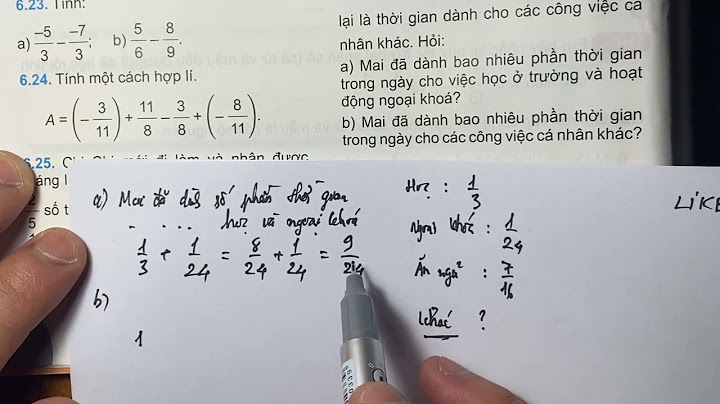 6.23. Tính:
a) -5/3 - -7/3; b) 5/6 - 8/9.
6.24. Tính một cách hợp lí.
A = (-3/11) + 11/8 - 3/8 + (-8/11).
6.25.
lại là thời gian dành cho các công việc cá
nhân khác. Hỏi:
a) Mai đã dành bao nhiêu phần thời gian
trong ngày cho việc học ở trường và hoạt
động ngoại khoá?
b) Mai đã dành bao nhiêu phần thời gian
trong ngày cho các công việc cá nhân khác?
a) Mai đã dùng số phần thời gian
. . . . . học và ngoại khoá
1/3 + 1/24 = 8/24 + 1/24 = 9/24
b)
1
Học : 1/3
Ngoại khoá : 1/24
Ăn ngủ : 7/16
khác ?
LIKE